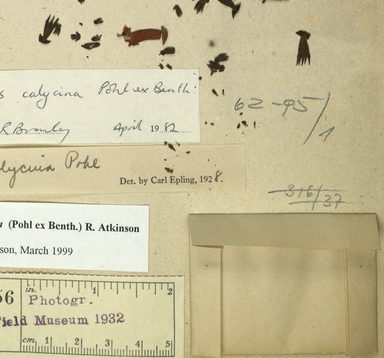 s calycina Pohl ex Benth.
April 1982
62-95/1
lycina Pohl
Det. by Carl Epling, 1928.
316/37
(Pohl ex Benth.) R. Atkinson
son, March 1999
56 in. 1 2
Photogr.
Field Museum 1932
cm 1 2 3 4 5